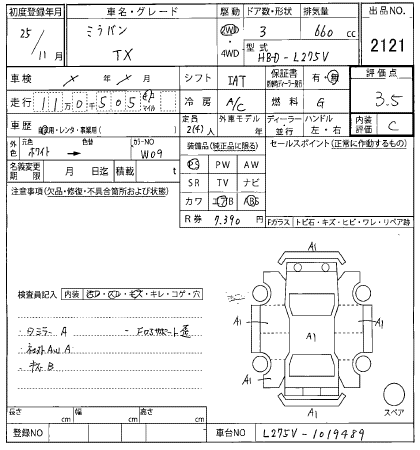 初度登録年月 車名・グレード 駆動 ドア数・形状 排気量 出品NO.
25年 11月 ミラバン TX 2WD ・4WD 3 660 cc 2121
型式 HBD-L275V
車検 年 月 シフト IAT 保証書 有・無 評価点
走行 11万0千505 km マイル 冷房 A/C 燃料 G 3.5
車歴 自家用・レンタ・事業用( ) 定員 2(4)人 外車モデル 年 ディーラー・並行 ハンドル 左・右 内装評価 C
外色 元色 ホワイト → 色替 カラーNO W09 装備品(純正品に限る) セールスポイント(正常に作動するもの)
名義変更期限 月 日迄 積載 t PS PW AW
注意事項(欠品・修復・不具合箇所および状態) SR TV ナビ
カワ エアB ABS
R券 7,390 円 Fガラス トビ石・キズ・ヒビ・ワレ・リペア跡
A1
検査員記入 内装 ・キレ・コゲ・穴
A1 A1 A1
A1 A1
A1
スペア
長さ cm 幅 cm 高さ cm
登録NO 車台NO L275V-1019489